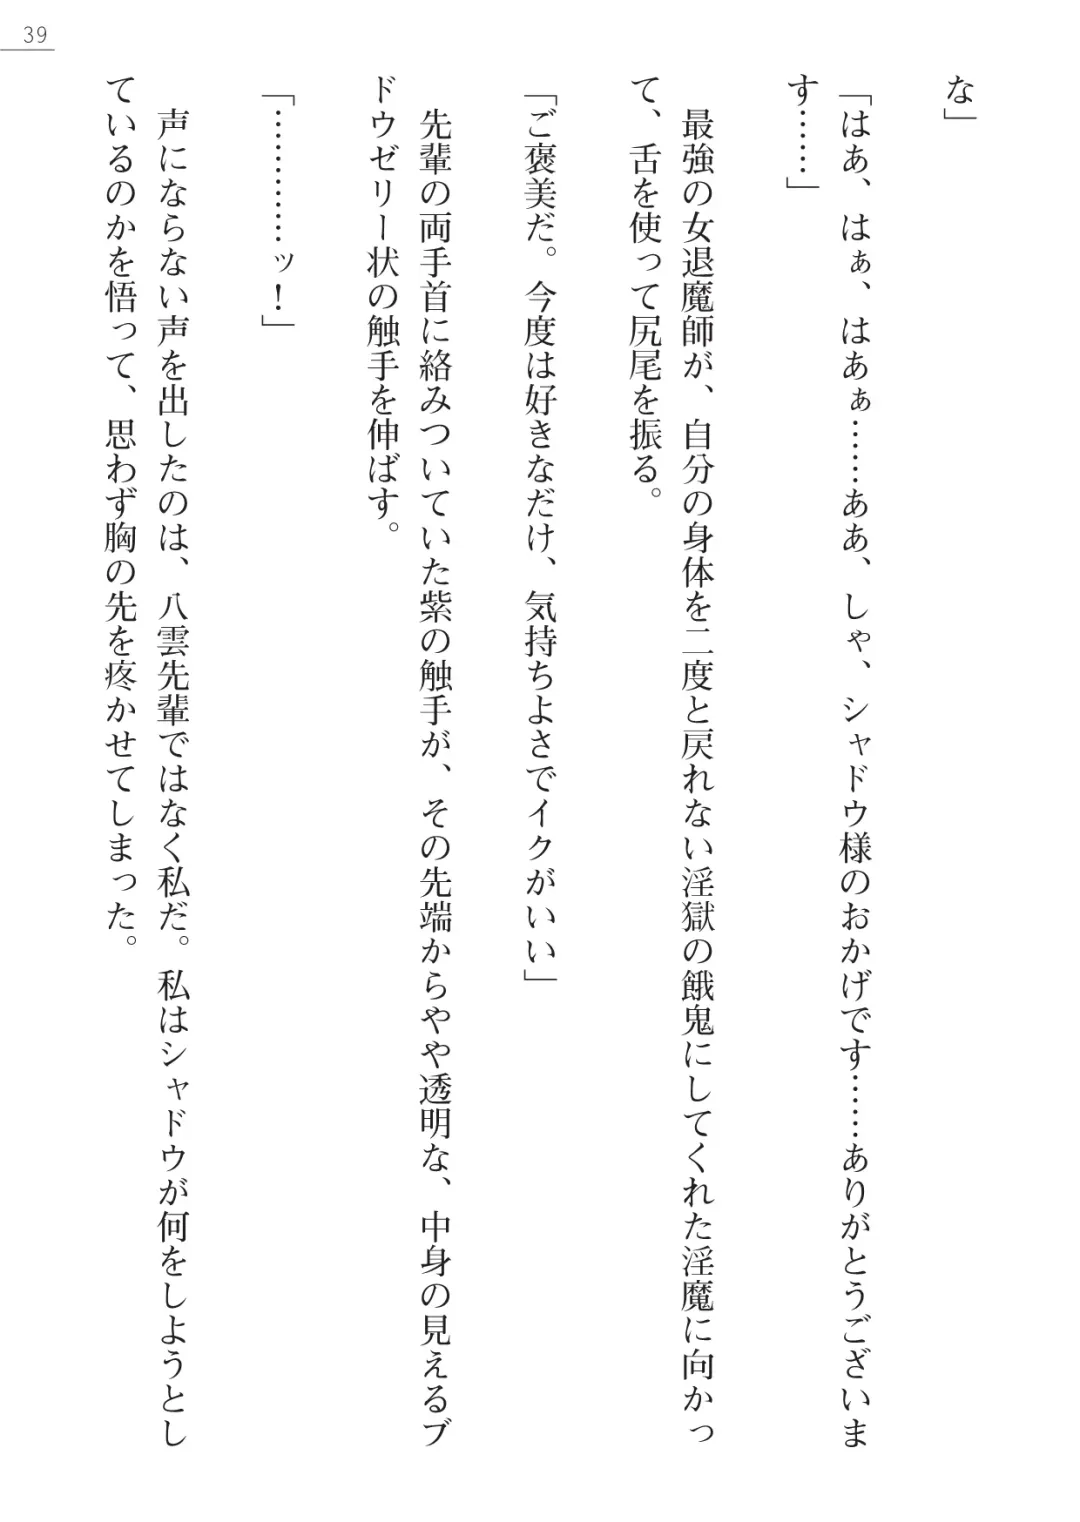 39
な」
「はあ、はぁ、はあぁ……ああ、しゃ、シャドウ様のおかげです……ありがとうございま
す……」
最強の女退魔師が、自分の身体を二度と戻れない淫獄の餓鬼にしてくれた淫魔に向かっ
て、舌を使って尻尾を振る。
「ご褒美だ。今度は好きなだけ、気持ちよさでイクがいい」
先輩の両手首に絡みついていた紫の触手が、その先端からやや透明な、中身の見えるブ
ドウゼリー状の触手を伸ばす。
「…………ッ！」
声にならない声を出したのは、八雲先輩ではなく私だ。私はシャドウが何をしようとし
ているのかを悟って、思わず胸の先を疼かせてしまった。